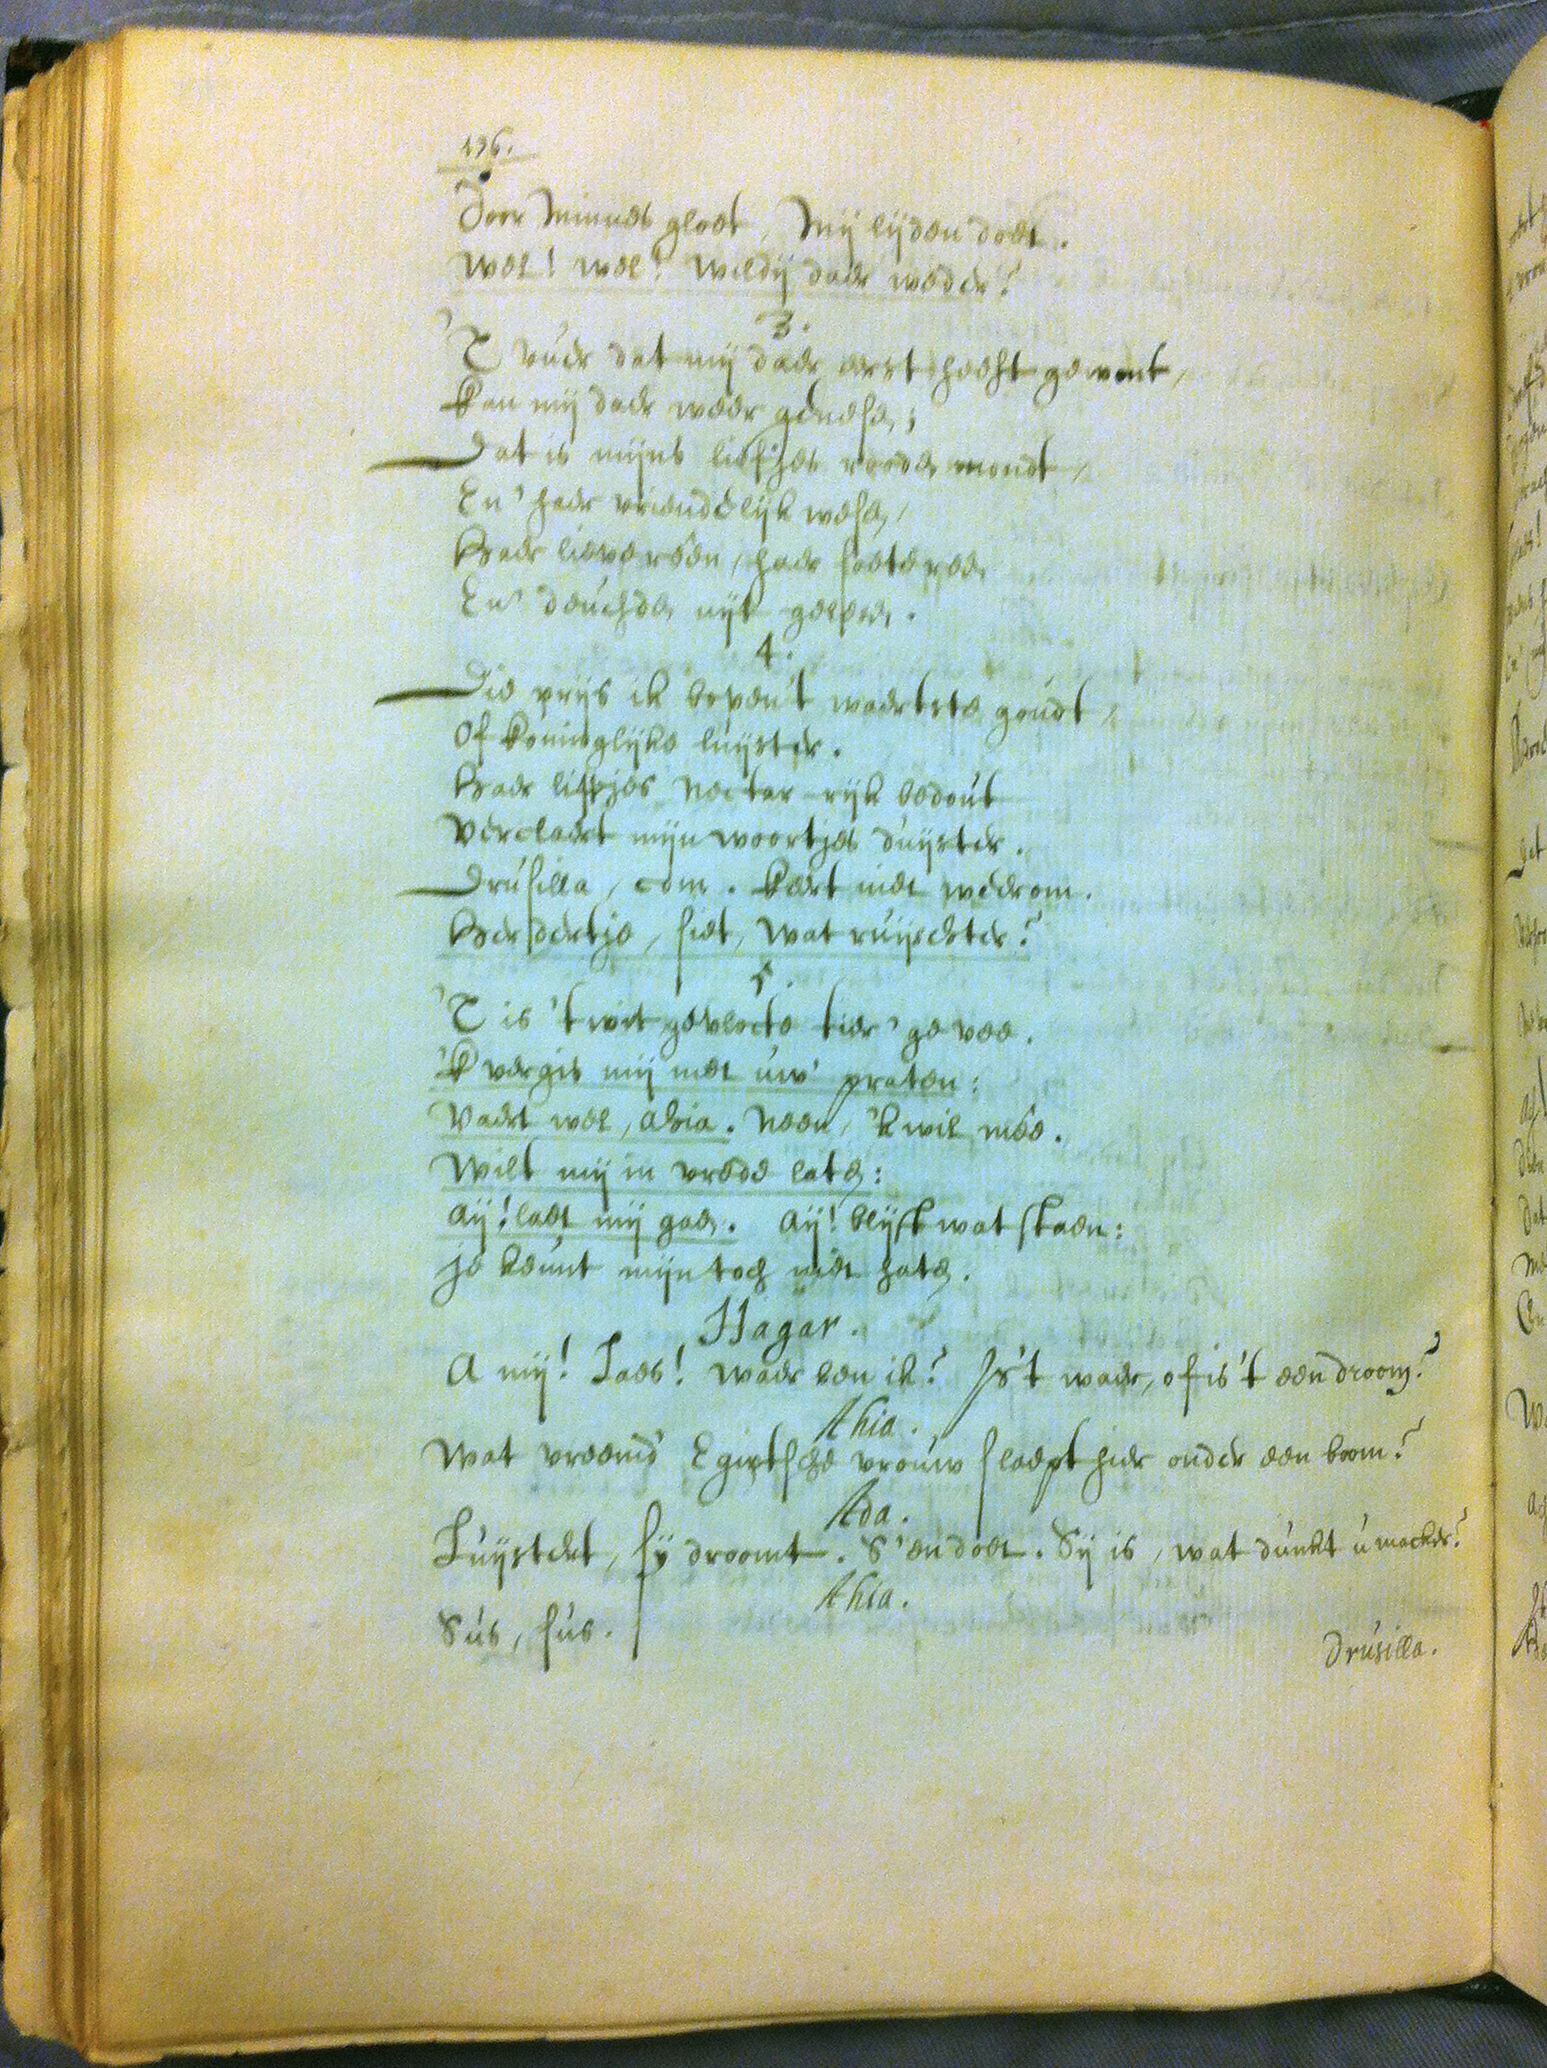 136.
Door Minnes gloet, Mij lijden doet.
Wel! wel! Wildij daer weder?
3.
'T vuer dat mij daer eerst heeft gewont,
Kan mij daer weer genese;
Dat is mijns liefjes roode mondt,
En' haer vriendelijk wese,
Haer lieve reen, haer soete ree
En' deuchde uijt gelese.
4.
Die prijs ik boven 't waertste goudt,
Of koninglijke luijster.
Haer lipjes Nectar-rijk bedout
Verclaert mijn woortjes duijster.
Drusilla, com. Keert niet wederom.
Herdertje, siet, wat ruijschter?
5.
'T is 't wit gevlockte tier'ge vee.
'K vergis mij met uw' praten:
Vaert wel, Ahia. Neen, 'k wil mee.
Wilt mij in vrede late:
Aij! laet mij gae. Aij! blijft wat staen:
Je keunt mijn toch niet hate.
Hagar.
A mij! Laes! waer ben ik? Is't waer, of is't een droom?
Ahia.
Wat vreemd' Egiptsche vrouw slaept hier onder een boom?
Ada.
Luijstert, sij droomt. S'en doet. Sij is, wat dunkt u macker?
Ahia.
Sus, sus.
Drusilla.